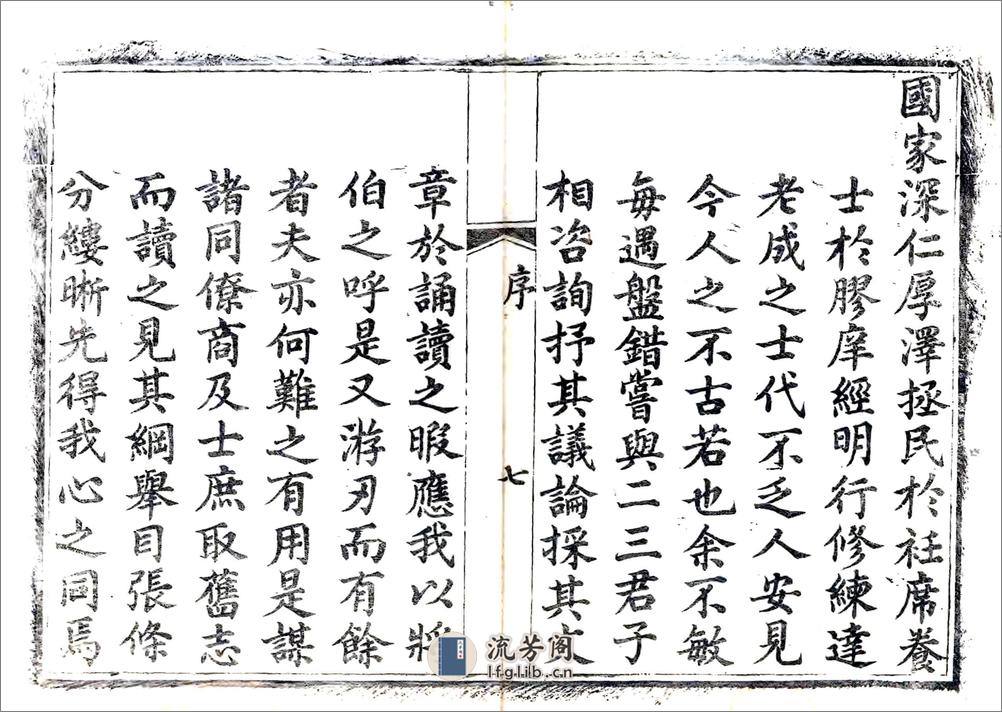 國家深仁厚澤拯民於衽席養
士於膠庠經明行修練達
老成之士代不乏人安見
今人之不古若也余不敏
每遇盤錯嘗與二三君子
相咨詢抒其議論採其文
序
七
章於誦讀之暇應我以將
伯之呼是又游刃而有餘
者夫亦何難之有用是謀
諸同僚商及士庶取舊志
而讀之見其綱舉目張條
分縷晰先得我心之同焉
流芳阁
lfglib.cn